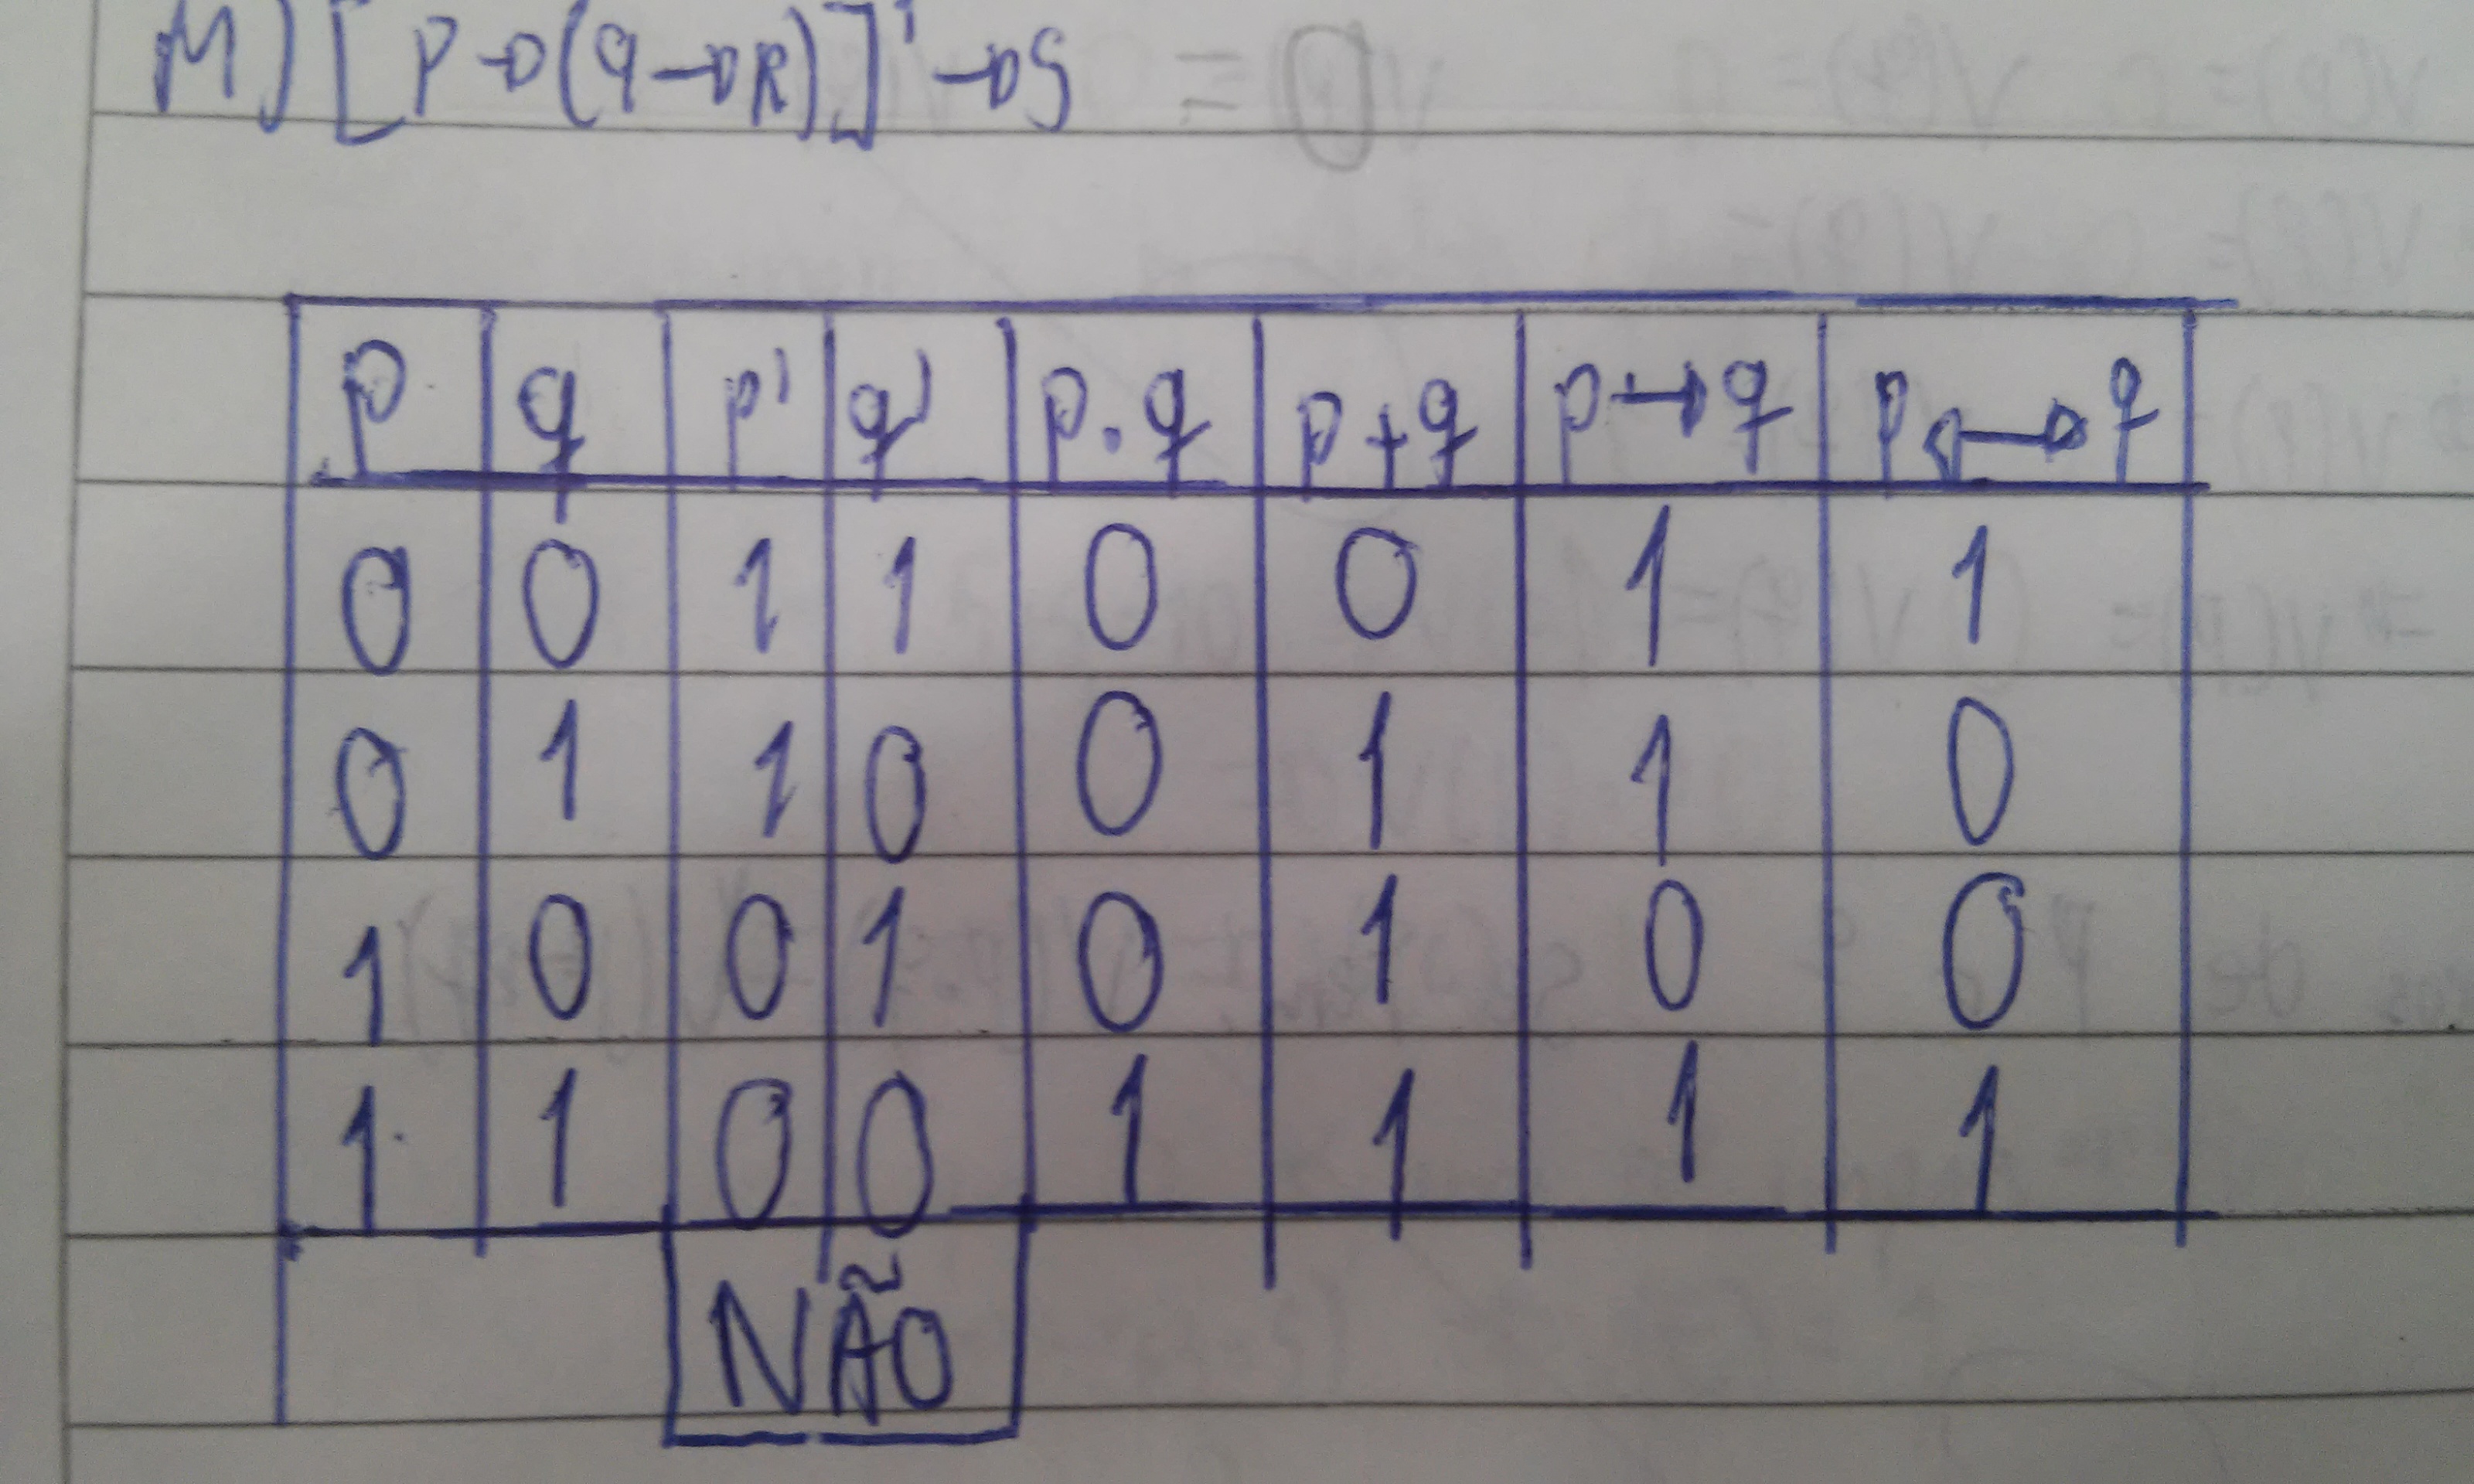 M) [P→(q→R)]'→S = 0
p q p' q' p.q p+q p→q p↔q
0 0 1 1 0 0 1 1
0 1 1 0 0 1 1 0
1 0 0 1 0 1 0 0
1 1 0 0 1 1 1 1
NÃO